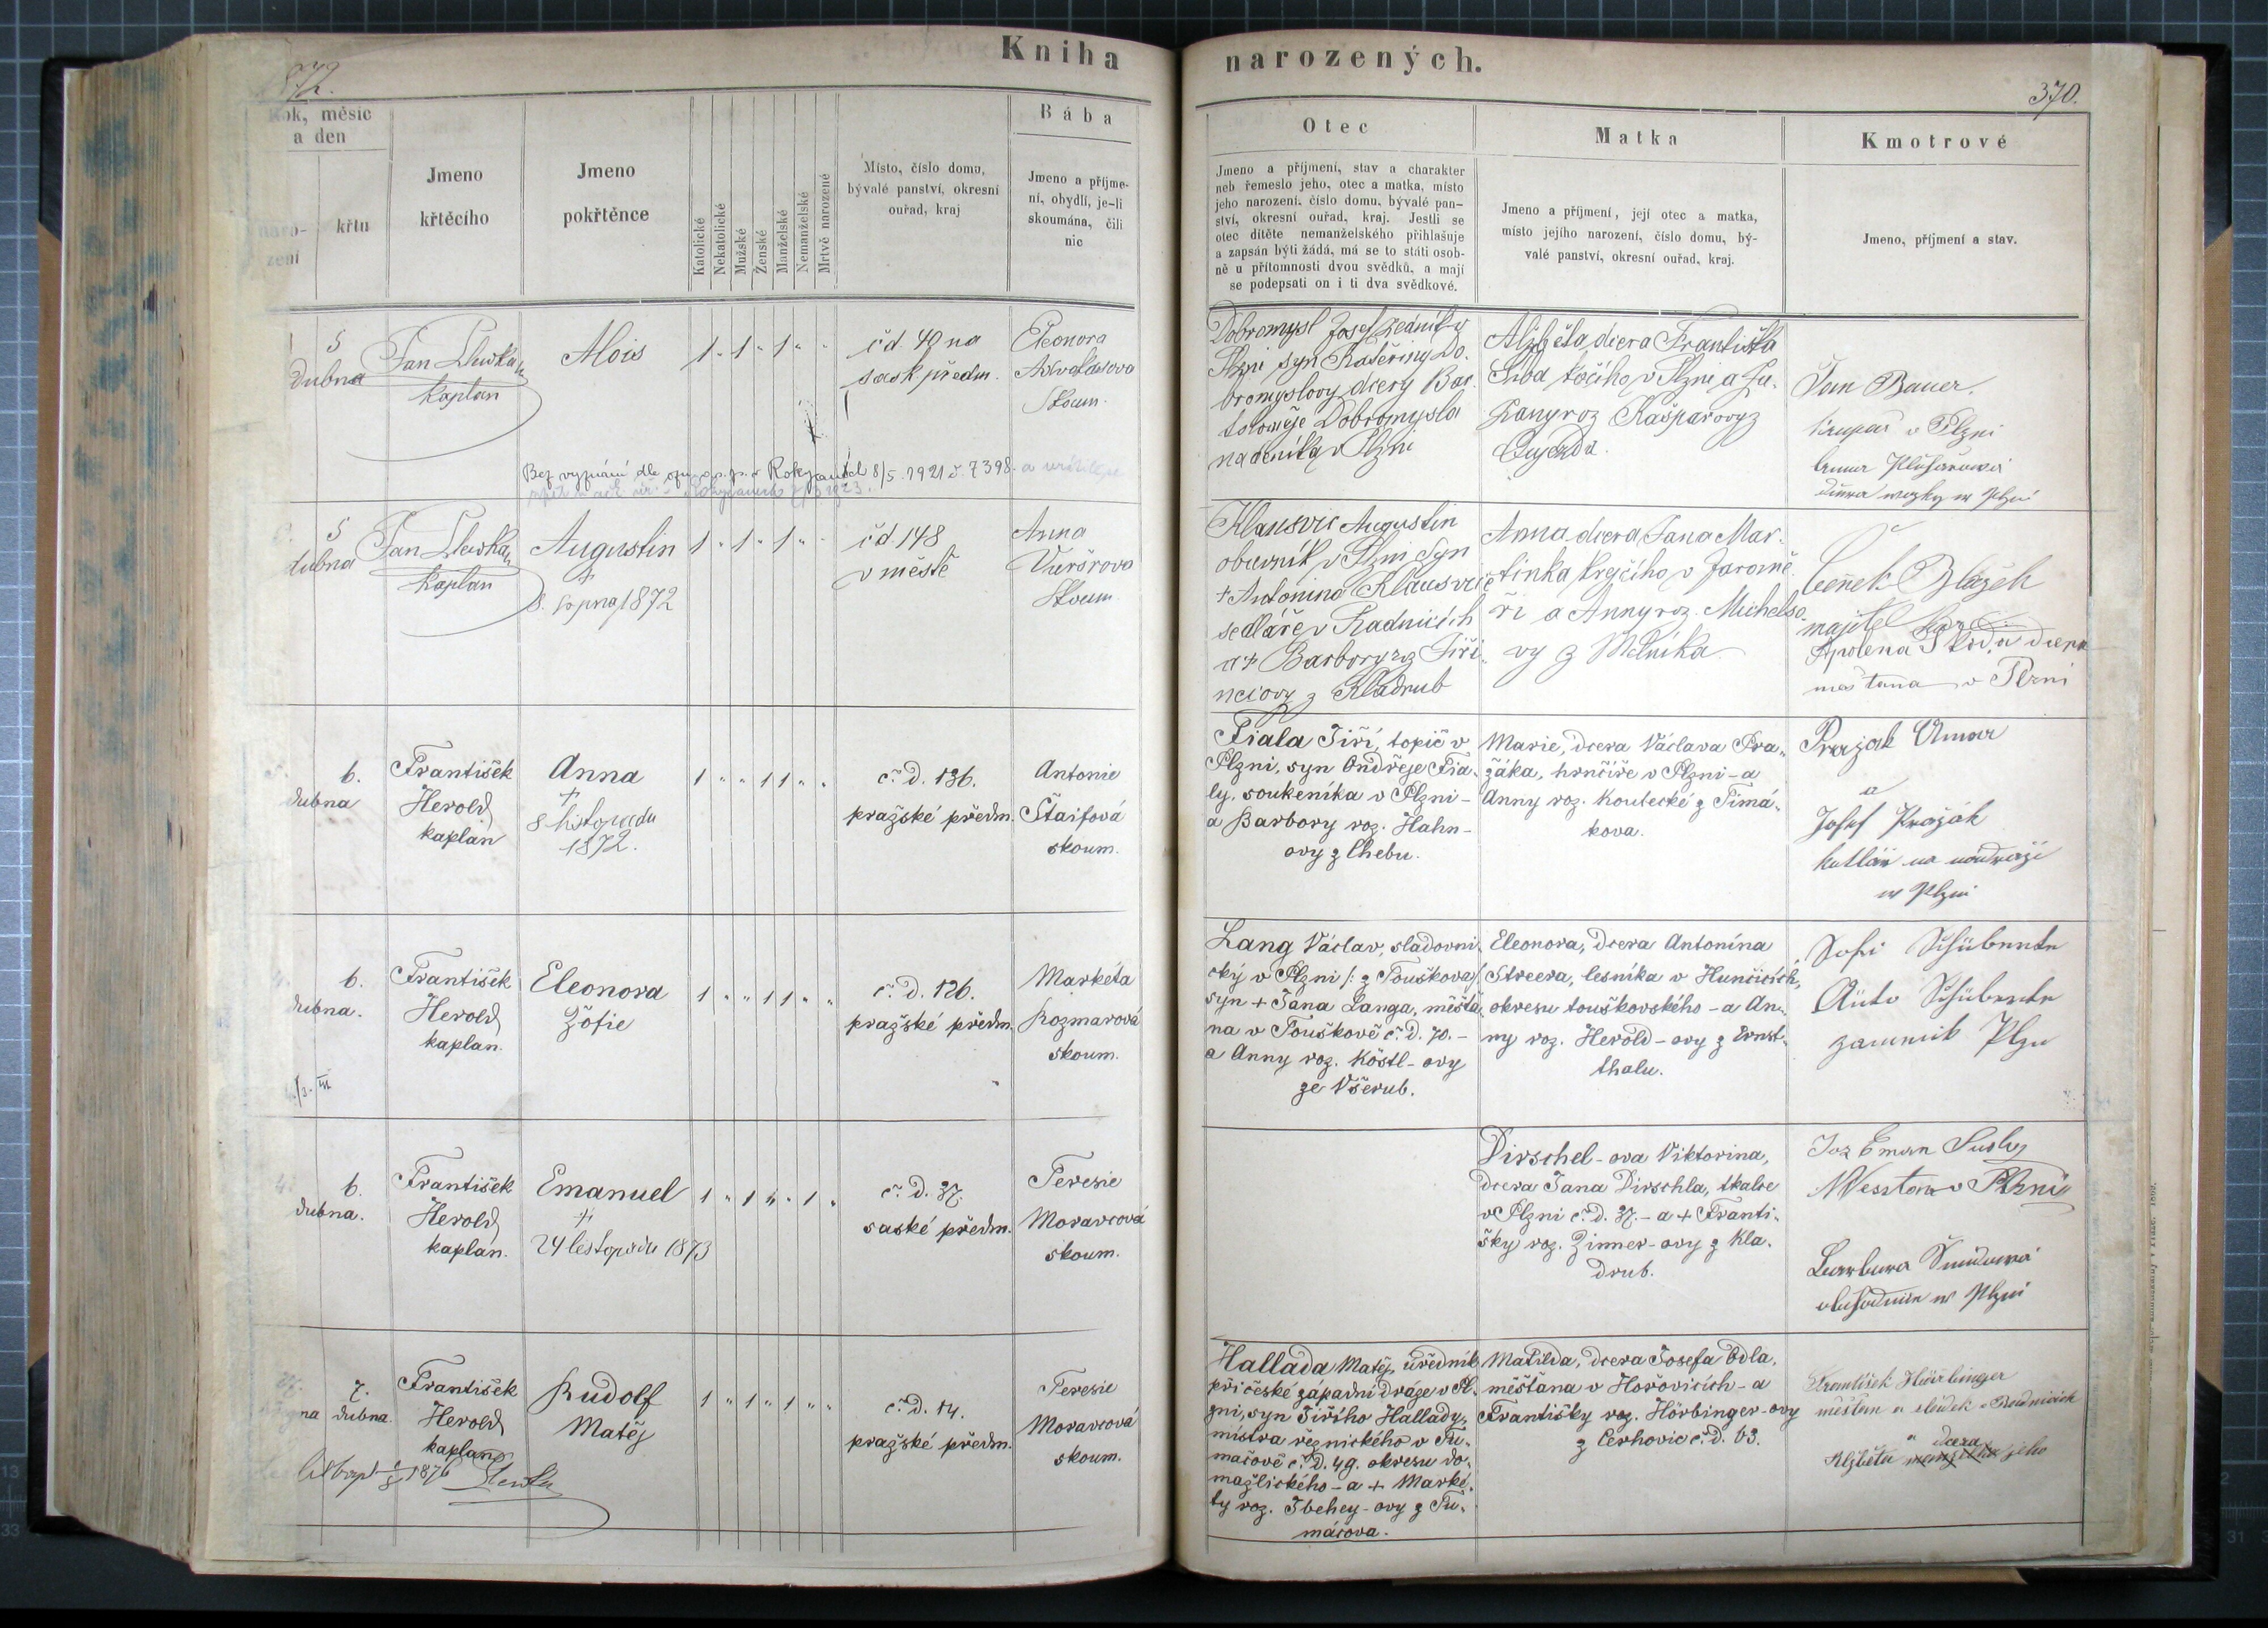 Kniha narozených.
872.
370.
Rok, měsíc
a den
naro-
zení
křtu
Jmeno
křtěcího
Jmeno
pokřtěnce
Katolické
Nekatolické
Mužské
Ženské
Manželské
Nemanželské
Mrtvě narozené
Místo, číslo domu,
bývalé panství, okresní
ouřad, kraj
Bába
Jmeno a příjme-
ní, obydlí, je-li
skoumána, čili
nic
Otec
Jmeno a příjmení, stav a charakter
neb řemeslo jeho, otec a matka, místo
jeho narození, číslo domu, bývalé pan-
ství, okresní ouřad, kraj. Jestli se
otec dítěte nemanželského přihlašuje
a zapsán býti žádá, má se to státi osob-
ně u přítomnosti dvou svědků, a mají
se podepsati on i ti dva svědkové.
Matka
Jmeno a příjmení, její otec a matka,
místo jejího narození, číslo domu, bý-
valé panství, okresní ouřad, kraj.
Kmotrové
Jmeno, příjmení a stav.
5
dubna
Jan
kaplan
Alois
1 " 1 " 1 " "
čd. 40 na
sask předm.
Eleonora
Skoum.
Dobromysl Josef zedník v
Plzni syn Kateřiny Do-
bromyslovy dcery Bar-
toloměje Dobromysla
nádeníka v Plzni
Alžběta dcera Františka
kočího v Plzni a
roz Kašparovy z
Jan Bauer
v Plzni
w Plzni
Bez vyznání dle
Rokycanech 8/5 1921 č. 7398.
5
dubna
Jan
kaplan
Augustin
+
8. srpna 1872
1 " 1 " 1 " "
čd. 148
v městě
Anna
Skoum
Klausvic Augustin
obuvník v Plzni syn
+ Antonina Klausvice
sedláře v Radnicích
a + Barbory roz Jiři-
nciovy z Kladrub
Anna dcera Jana Mar-
tinka krejčího v Jaromě-
ři a Anny roz. Michelso-
vy z Mělníka
Čeněk Blažek
majitel
Apolena dcera
měšťana v Plzni
6.
dubna
František
Herold
kaplan
Anna
+
8 listopadu
1872.
1 " " 1 1 " "
č. D. 136.
pražské předm.
Antonie
Štaifová
skoum.
Fiala Jiří, topič v
Plzni, syn Ondřeje Fia-
ly, soukeníka v Plzni -
a Barbory roz. Hahn-
ovy z Chebu.
Marie, dcera Václava Pra-
žáka, hrnčíře v Plzni - a
Anny roz. Koutecké z Timá-
kova.
Prazak Anna
a
Josef Pražák
kotlář na nádraží
w Plzni
6.
dubna.
František
Herold
kaplan.
Eleonora
Žofie
1 " " 1 1 " "
č. D. 126.
pražské předm.
Markéta
Rozmarová
skoum.
Lang Václav, sladovni-
cký v Plzni /: z Touškova :/
syn + Jana Langa, měšťa-
na v Touškově č. D. 70. -
a Anny roz. Köstl-ovy
ze Všerub.
Eleonora, dcera Antonína
Streera, lesníka v Hunčicích,
okresu touškovského - a An-
ny roz. Herold-ovy z Ernst-
thalu.
6.
dubna.
František
Herold
kaplan.
Emanuel
+
24 listopadu 1873
1 " 1 " " 1 "
č. D. 37.
saské předm.
Teresie
Moravcová
skoum.
Dirschel-ova Viktorina,
dcera Jana Dirschla, tkalce
v Plzni č. D. 37. - a + Franti-
šky roz. Zinner-ovy z Kla-
drub.
v Plzni
w Plzni
7.
dubna.
František
Herold
kaplan
Rudolf
Matěj
1 " 1 " 1 " "
č. D. 14.
pražské předm.
Teresie
Moravcová
skoum.
Hallada Matěj, úředník
při české západní dráze v Pl-
zni, syn Jiřího Hallady,
mistra řeznického v Tu-
mačově č. D. 49. okresu do-
mažlického - a + Marké-
ty roz. Ibehey-ovy z Tu-
máčova.
Matilda, dcera Josefa Odla,
měšťana v Hořovicích - a
Františky roz. Hörbinger-ovy
z Cerhovic č. D. 63.
František Hörbinger
měšťan a sládek v Radnicích
a dcera
Alžběta jeho
1876